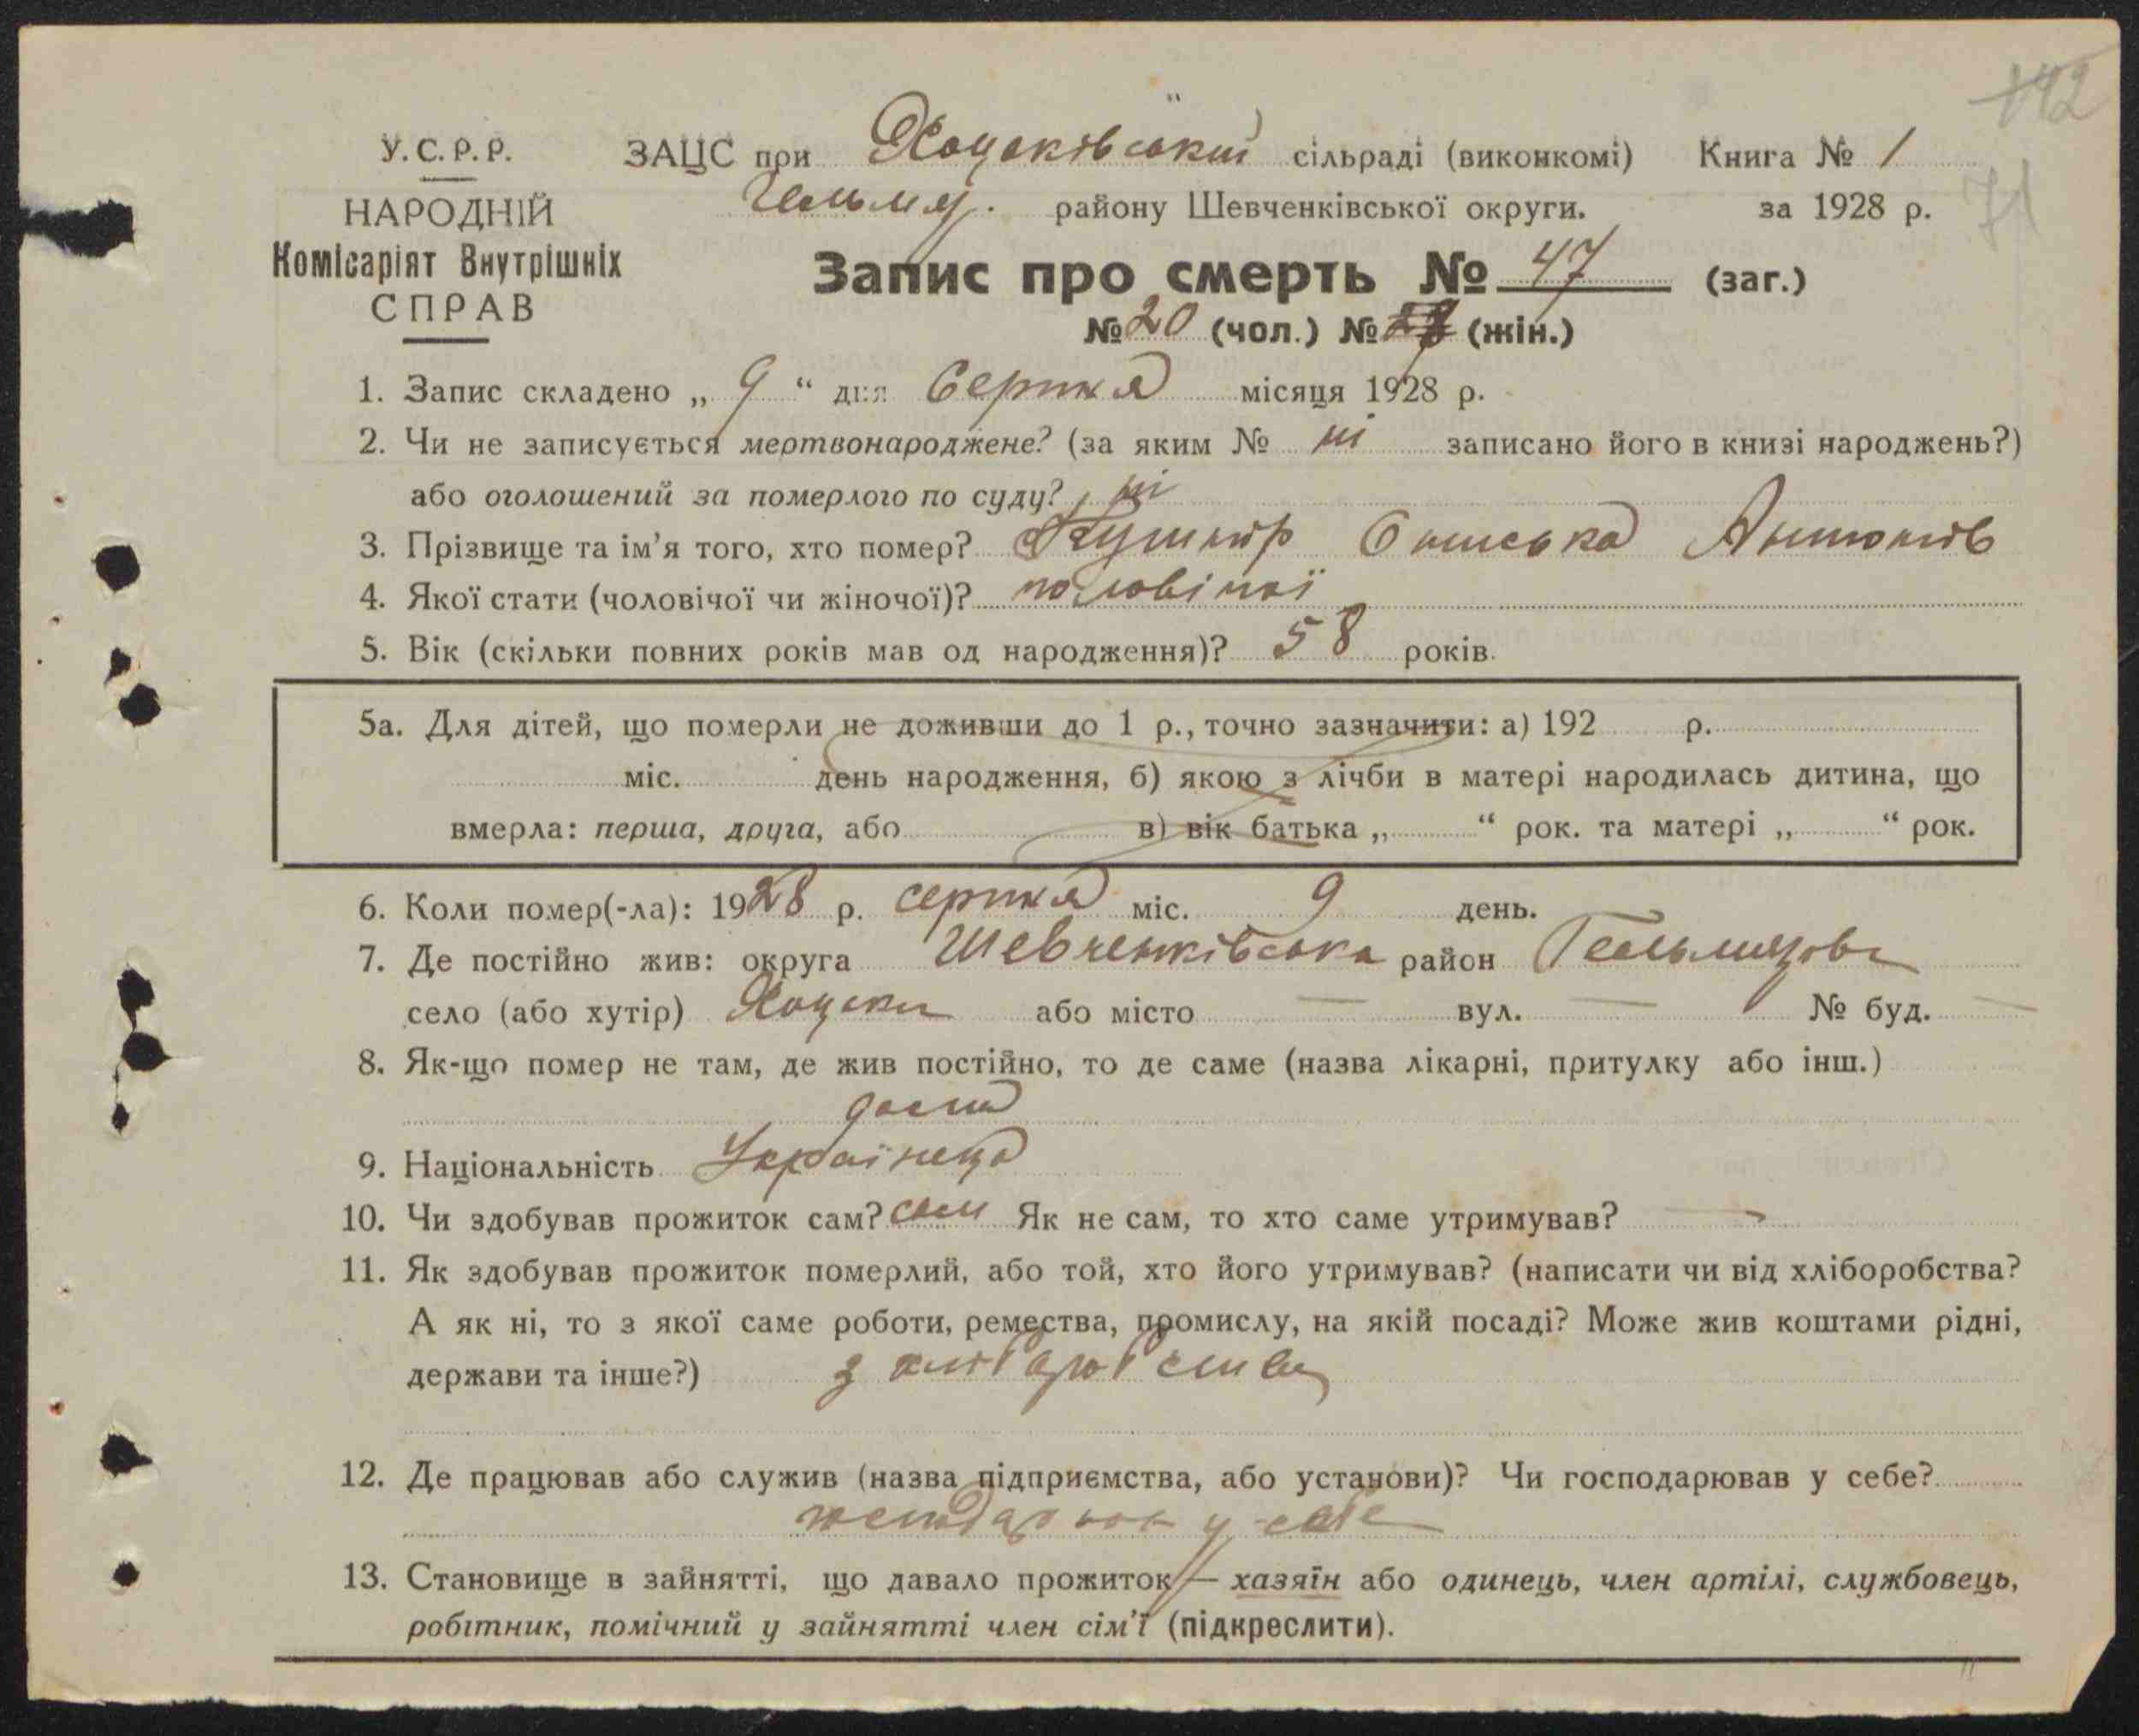 142
У.С.Р.Р. ЗАЦС при Хоцьківський сільраді (виконкомі) Книга № 1
НАРОДНІЙ Гельмяз. району Шевченківської округи. за 1928 р. 71
Комісаріят Внутрішніх
СПРАВ
Запис про смерть № 47 (заг.)
№ 20 (чол.) № (жін.)
1. Запис складено „ 9 “ дня Серпня місяця 1928 р.
2. Чи не записується мертвонароджене? (за яким № ні записано його в книзі народжень?)
або оголошений за померлого по суду? ні
3. Прізвище та ім’я того, хто помер? Кушнір Ониська Антонів
4. Якої стати (чоловічої чи жіночої)? чоловічої
5. Вік (скільки повних років мав од народження)? 58 років.
5а. Для дітей, що померли не доживши до 1 р., точно зазначити: а) 192 р.
міс. день народження, б) якою з лічби в матері народилась дитина, що
вмерла: перша, друга, або в) вік батька „ “ рок. та матері „ “ рок.
6. Коли помер(-ла): 1928 р. серпня міс. 9 день.
7. Де постійно жив: округа Шевченківська район Гельмязівс
село (або хутір) Хоцьки або місто — вул. — № буд. —
8. Як-що помер не там, де жив постійно, то де саме (назва лікарні, притулку або інш.)
дома
9. Національність Українець
10. Чи здобував прожиток сам? сам Як не сам, то хто саме утримував? —
11. Як здобував прожиток померлий, або той, хто його утримував? (написати чи від хліборобства?
А як ні, то з якої саме роботи, ремества, промислу, на якій посаді? Може жив коштами рідні,
держави та інше?) з хліборобства
12. Де працював або служив (назва підприємства, або установи)? Чи господарював у себе?
у себе
13. Становище в зайнятті, що давало прожиток — хазяїн або одинець, член артілі, службовець,
робітник, помічний у зайнятті член сім’ї (підкреслити).